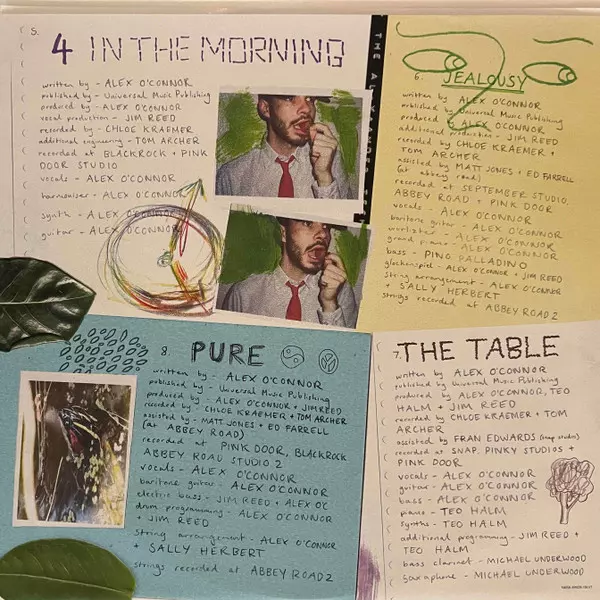 5.
4 IN THE MORNING
written by - ALEX O'CONNOR
published by - Universal Music Publishing
produced by - ALEX O'CONNOR
vocal production - JIM REED
recorded by - CHLOE KRAEMER
additional engineering - TOM ARCHER
recorded at BLACKROCK + PINK
DOOR STUDIO
vocals - ALEX O'CONNOR
harmoniser - ALEX O'CONNOR
synth - ALEX O'CONNOR
guitar - ALEX O'CONNOR
6. JEALOUSY
written by ALEX O'CONNOR
published Universal Music Publishing
produced ALEX O'CONNOR
additional production - JIM REED
recorded by CHLOE KRAEMER +
TOM ARCHER
assisted by MATT JONES + ED FARRELL
(at abbey road)
recorded at SEPTEMBER STUDIO,
ABBEY ROAD + PINK DOOR
vocals - ALEX O'CONNOR
baritone guitar - ALEX O'CONNOR
wurlitzer - ALEX O'CONNOR
grand piano - ALEX O'CONNOR
bass - PINO PALLADINO
glockenspiel - ALEX O'CONNOR + JIM REED
string arrangement - ALEX O'CONNOR
+ SALLY HERBERT
strings recorded at ABBEY ROAD 2
8. PURE
written by - ALEX O'CONNOR
published by - Universal Music Publishing
produced by - ALEX O'CONNOR + JIM REED
recorded by - CHLOE KRAEMER + TOM ARCHER
assisted by - MATT JONES + ED FARRELL
(at ABBEY ROAD)
recorded at PINK DOOR, BLACKROCK
ABBEY ROAD STUDIO 2
vocals - ALEX O'CONNOR
baritone guitar - ALEX O'CONNOR
electric bass - JIM REED + ALEX O'C
drum programming - ALEX O'CONNOR
+ JIM REED
string arrangement - ALEX O'CONNOR
+ SALLY HERBERT
strings recorded at ABBEY ROAD 2
7. THE TABLE
written by ALEX O'CONNOR
published by Universal Music Publishing
produced by ALEX O'CONNOR, TEO
HALM + JIM REED
recorded by CHLOE KRAEMER + TOM
ARCHER
assisted by FRAN EDWARDS (snap studios)
recorded at SNAP, PINKY STUDIOS +
PINK DOOR
vocals - ALEX O'CONNOR
guitar - ALEX O'CONNOR
bass - ALEX O'CONNOR
piano - TEO HALM
synths - TEO HALM
additional programming - JIM REED +
TEO HALM
bass clarinet - MICHAEL UNDERWOOD
saxophone - MICHAEL UNDERWOOD